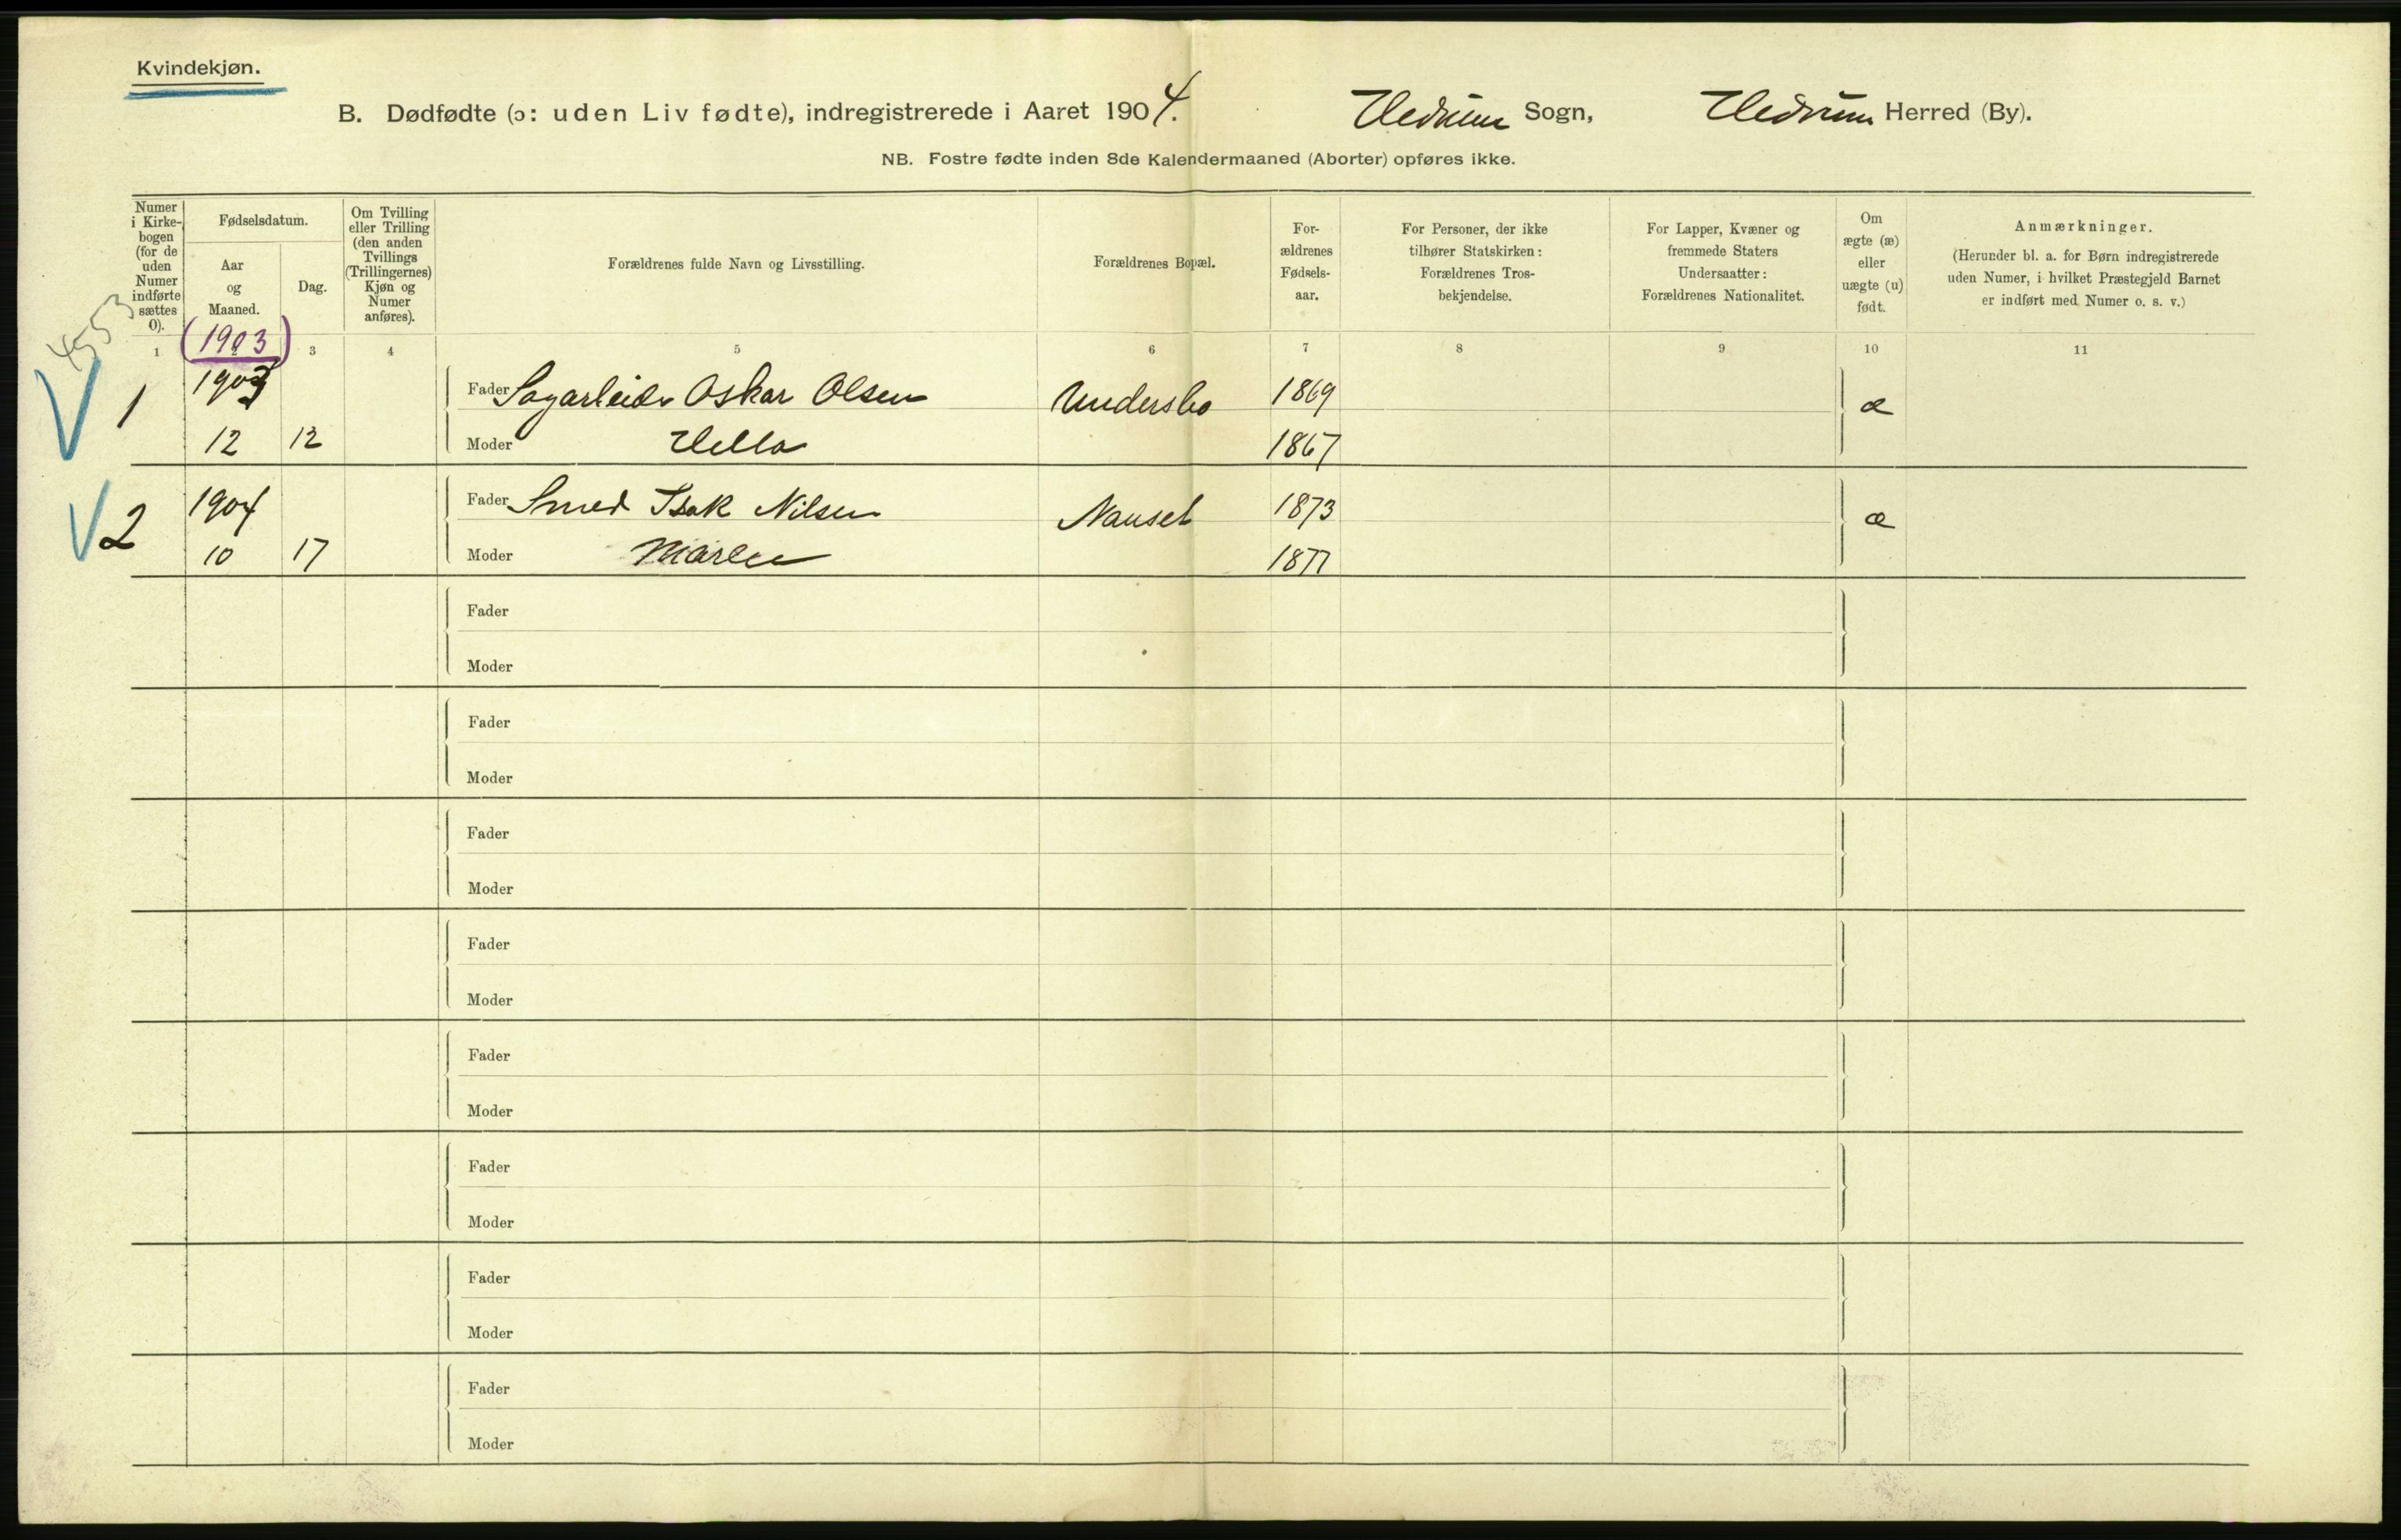 Kvindekjøn.
B. Dødfødte (ɔ: uden Liv fødte), indregistrerede i Aaret 1904. Hedrum Sogn, Hedrum Herred (By).
NB. Fostre fødte inden 8de Kalendermaaned (Aborter) opføres ikke.
Numer i Kirke-
bogen
(for de
uden
Numer
indførte
sættes
0).
Fødselsdatum.
Aar
og
Maaned.
Dag.
Om Tvilling
eller Trilling
(den anden
Tvillings
(Trillingernes)
Kjøn og
Numer
anføres).
Forældrenes fulde Navn og Livsstilling.
Forældrenes Bopæl.
For-
ældrenes
Fødsels-
aar.
For Personer, der ikke
tilhører Statskirken:
Forældrenes Tros-
bekjendelse.
For Lapper, Kvæner og
fremmede Staters
Undersaatter:
Forældrenes Nationalitet.
Om
ægte (æ)
eller
uægte (u)
født.
Anmærkninger.
(Herunder bl. a. for Børn indregistrerede
uden Numer, i hvilket Præstegjeld Barnet
er indført med Numer o. s. v.)
4553
(1903)
1 2 3 4 5 6 7 8 9 10 11
V 1 1903 Fader Sagarbeider Oskar Olsen Undersbo 1869 æ
12 12 Moder Hella 1867
V 2 1904 Fader Smed Isak Nilsen Nanset 1873 æ
10 17 Moder Maren 1877
Fader
Moder
Fader
Moder
Fader
Moder
Fader
Moder
Fader
Moder
Fader
Moder
Fader
Moder
Fader
Moder